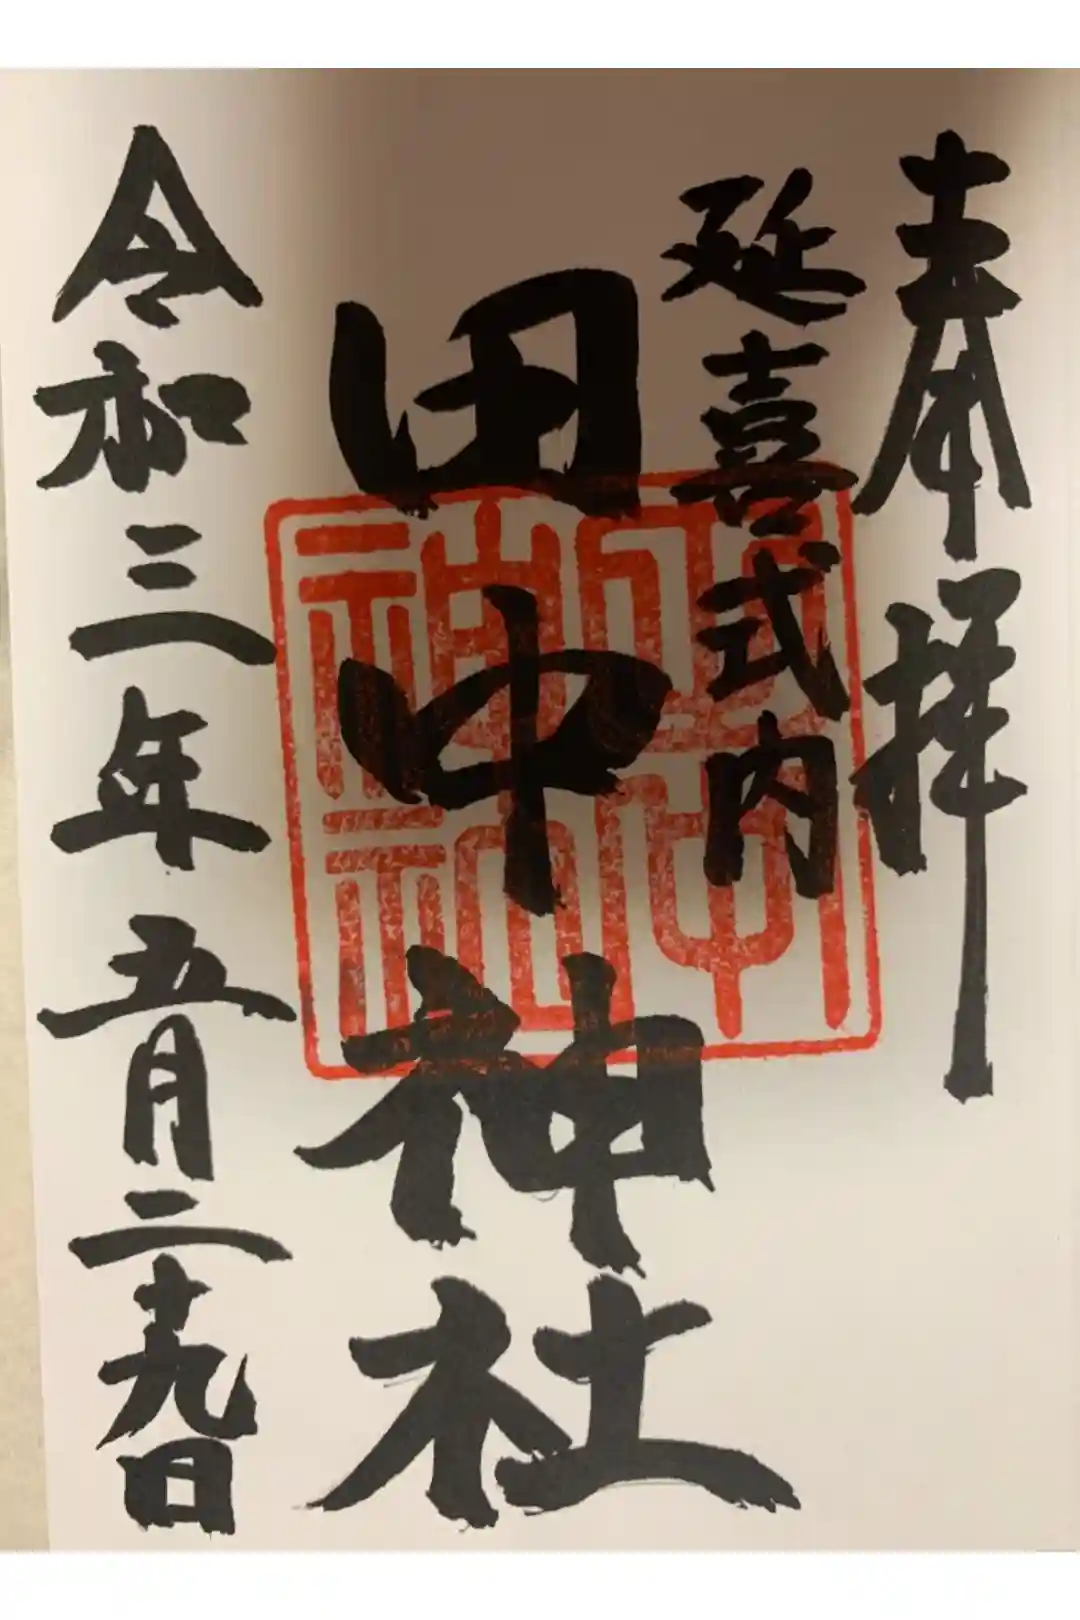 奉拝
延喜式内
田中神社
令和三年五月二十九日